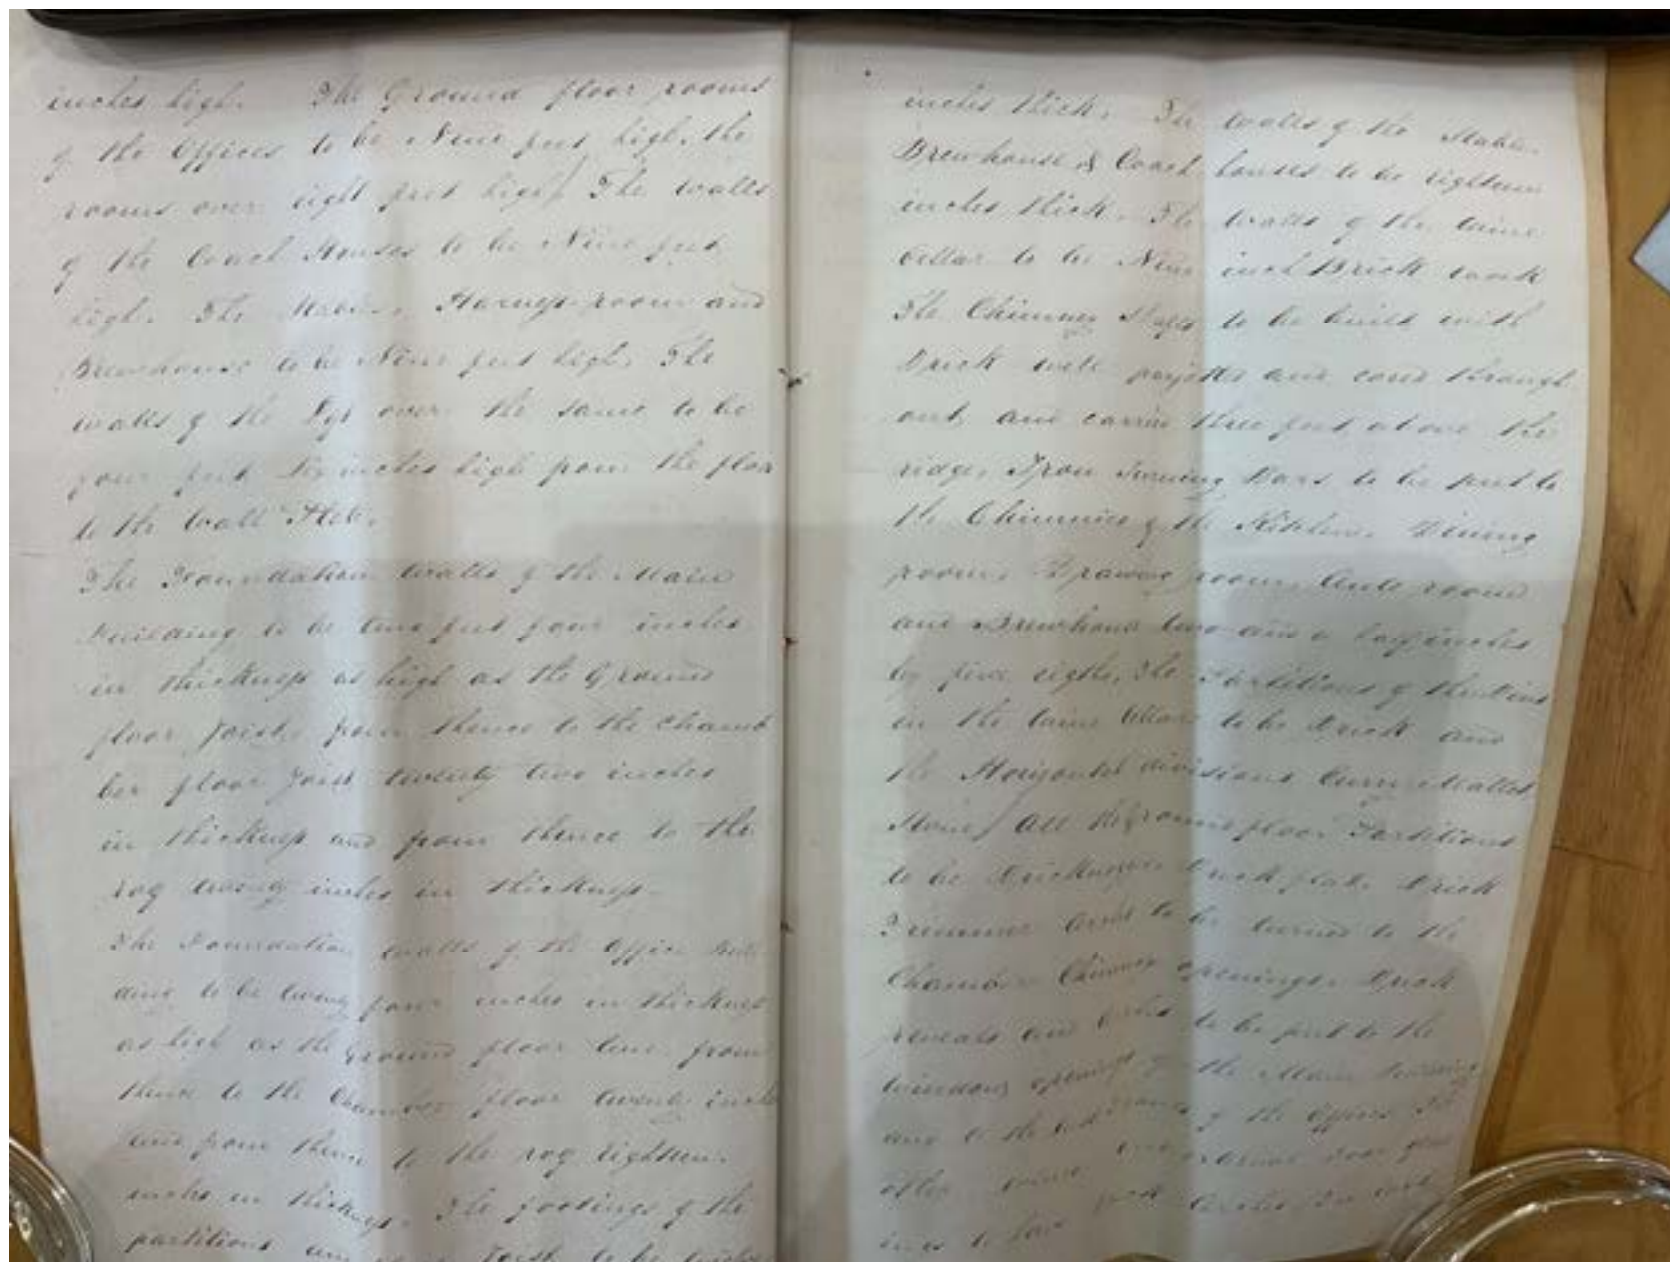 inches high. The Ground floor rooms
of the Offices to be Nine feet high, the
rooms over eight feet high. The walls
of the Coach Houses to be Nine feet
high. The Harness room and
Brewhouse to be Nine feet high. The
walls of the over the same to be
four feet Six inches high from the floor
to the Wall Plate.
The Foundation walls of the Main
Building to be two feet four inches
in thickness as high as the Ground
floor Joist, from thence to the Cham
ber floor Joist twenty two inches
in thickness and from thence to the
roof twenty inches in thickness.
The Foundation walls of the Office Buil
ding to be twenty four inches in thickness
as high as the Ground floor line, from
thence to the Chamber floor twenty inches
and from thence to the roof Eighteen
inches in thickness. The footings of the
partitions Joist to be
inches thick. The walls of the Stable,
Brewhouse & Coach houses to be eighteen
inches thick. The walls of the wine
Cellar to be Nine inch Brick work
The Chimney to be built with
Brick well and cored through
out, and carried three feet above the
ridge, Iron Bars to be put to
the Chimnies of the Kitchen, Dining
room, Drawing room, Ante room
and Brewhouse two and a half inches
by five eights, The Partitions of the Bins
in the wine Cellar to be Brick and
the Horizontal divisions
Stone. All the ground floor Partitions
to be Brick flat. Brick
Trimmer Arches to be turned to the
Chamber Chimney openings. Brick
reveals and arches to be put to the
window openings of the Main Building
and to the of the Offices. The
other external door
to have arches.